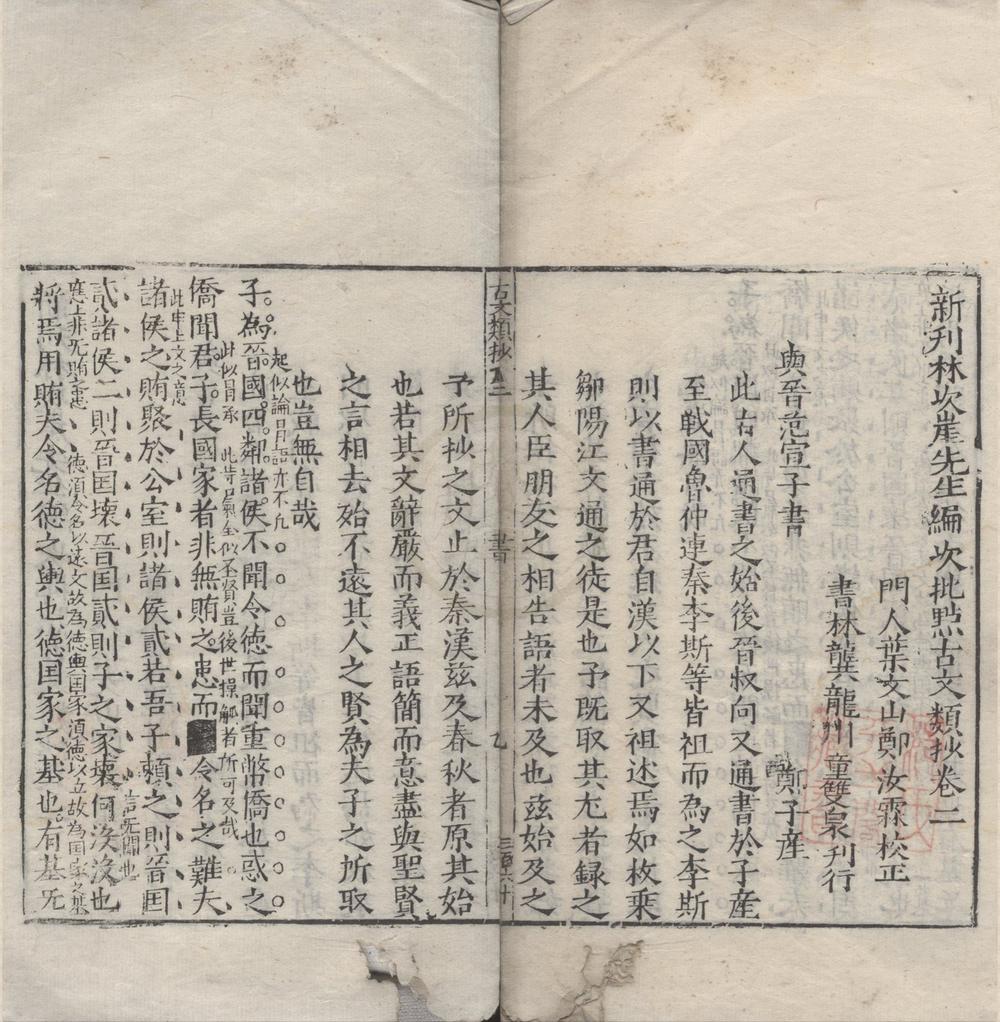 新刋林次崖先生編次批㸃古文類抄卷二
門人葉文山鄭汝霖校正
書林龔龍州童雙泉刋行
與晉范宣子書
鄭子產
此古人通書之始後晉叔向又通書於子產
至戰國魯仲連秦李斯等皆祖而為之李斯
則以書通於君自漢以下又祖述焉如枚乗
鄒陽江文通之徒是也予既取其尤若録之
其人臣朋友之相告語者未及也兹始及之
古文類抄
書
予所抄之文止於秦漢兹及春秋者原其始
也若其文辭嚴而義正語簡而意盡與聖賢
之言相去殆不遠其人之賢為夫子之所取
也豈無自哉
起似論冒語亦不凢
子為晉國四鄰諸侯不聞令徳而聞重幣僑也惑之
此似冒承
豈後世操觚者所可及哉
僑聞君子長國家者非無賄之患而令名之難夫
此申上文之意
諸侯之賄聚於公室則諸侯貳若吾子頼之則晉囯
貳諸侯二則晉囯壊晉囯貳則子之家壊何沒沒也
應上非无賄之患
徳須令名以逺文故為徳輿囯家須徳以立故為囯家之基
將焉用賄夫令名徳之輿也徳囯家之基也有基旡